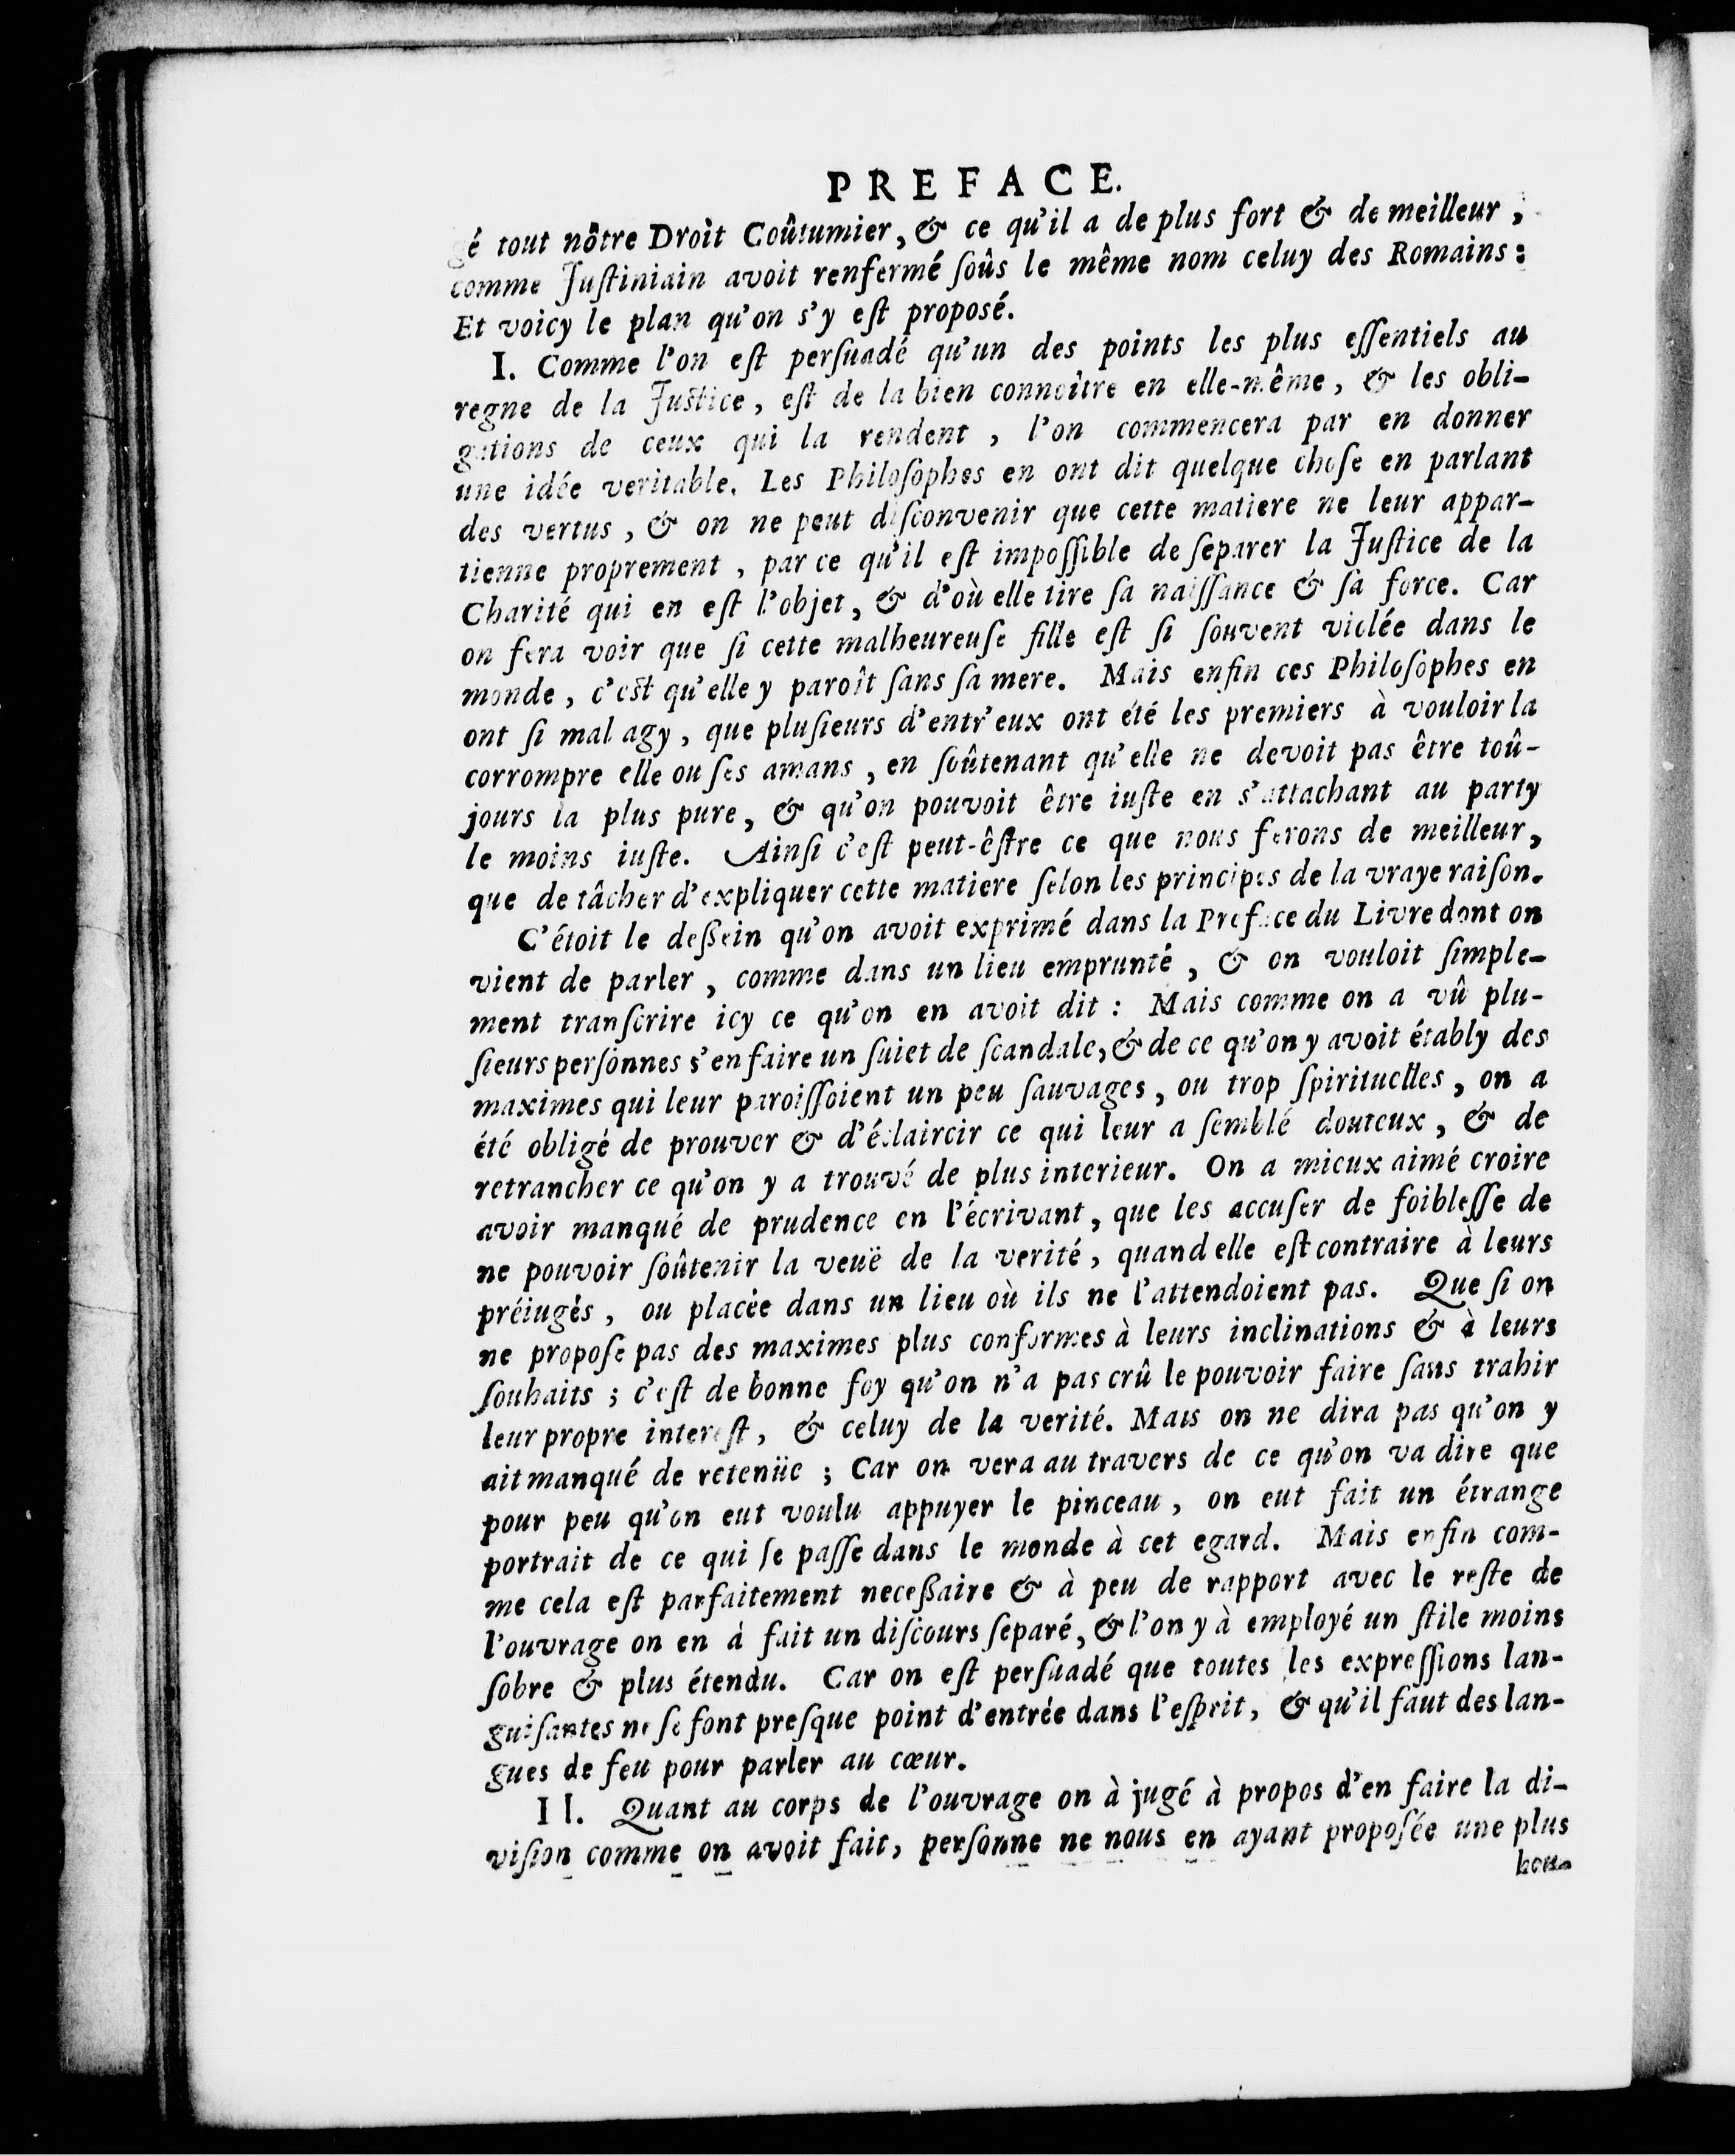 PREFACE.
gé tout nôtre Droit Coûtumier, & ce qu'il a de plus fort & de meilleur,
comme Juſtiniain avoit renfermé ſoûs le même nom celuy des Romains:
Et voicy le plan qu'on s'y eſt proposé.
I. Comme l'on eſt perſuadé qu'un des points les plus eſſentiels au
regne de la Juſtice, eſt de la bien connoître en elle-même, & les obli-
gations de ceux qui la rendent, l'on commencera par en donner
une idée veritable. Les Philoſophes en ont dit quelque choſe en parlant
des vertus, & on ne peut diſconvenir que cette matiere ne leur appar-
tienne proprement, par ce qu'il eſt impoſſible de ſeparer la Juſtice de la
Charité qui en eſt l'objet, & d'où elle tire ſa naiſſance & ſa force. Car
on fera voir que ſi cette malheureuſe fille eſt ſi ſouvent violée dans le
monde, c'eſt qu'elle y paroît ſans ſa mere. Mais enfin ces Philoſophes en
ont ſi mal agy, que pluſieurs d'entr'eux ont été les premiers à vouloir la
corrompre elle ou ſes amans, en ſoûtenant qu'elle ne devoit pas être toû-
jours la plus pure, & qu'on pouvoit être iuſte en s'attachant au party
le moins iuſte. Ainſi c'eſt peut-êſtre ce que nous ferons de meilleur,
que de tâcher d'expliquer cette matiere ſelon les principes de la vraye raiſon.
C'étoit le deßein qu'on avoit exprimé dans la Preface du Livre dont on
vient de parler, comme dans un lieu emprunté, & on vouloit ſimple-
ment tranſcrire icy ce qu'on en avoit dit: Mais comme on a vû plu-
ſieurs perſonnes s'en faire un ſuiet de ſcandale, & de ce qu'on y avoit étably des
maximes qui leur paroiſſoient un peu ſauvages, ou trop ſpirituelles, on a
été obligé de prouver & d'éclaircir ce qui leur a ſemblé douteux, & de
retrancher ce qu'on y a trouvé de plus interieur. On a mieux aimé croire
avoir manqué de prudence en l'écrivant, que les accuſer de foibleſſe de
ne pouvoir ſoûtenir la veuë de la verité, quand elle eſt contraire à leurs
préiugés, ou placée dans un lieu où ils ne l'attendoient pas. Que ſi on
ne propoſe pas des maximes plus conformes à leurs inclinations & à leurs
ſouhaits; c'eſt de bonne foy qu'on n'a pas crû le pouvoir faire ſans trahir
leur propre intereſt, & celuy de la verité. Mais on ne dira pas qu'on y
ait manqué de retenüe; Car on vera au travers de ce qu'on va dire que
pour peu qu'on eut voulu appuyer le pinceau, on eut fait un étrange
portrait de ce qui ſe paſſe dans le monde à cet egard. Mais enfin com-
me cela eſt parfaitement neceßaire & à peu de rapport avec le reſte de
l'ouvrage on en à fait un diſcours ſeparé, & l'on y à employé un ſtile moins
ſobre & plus étendu. Car on eſt perſuadé que toutes les expreſſions lan-
guiſantes ne ſe font preſque point d'entrée dans l'eſprit, & qu'il faut des lan-
gues de feu pour parler au cœur.
II. Quant au corps de l'ouvrage on à jugé à propos d'en faire la di-
viſion comme on avoit fait, perſonne ne nous en ayant propoſée une plus